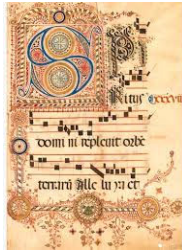 SP
ritus
domi ni repleuit orbē
terrarū Alle lu ya et